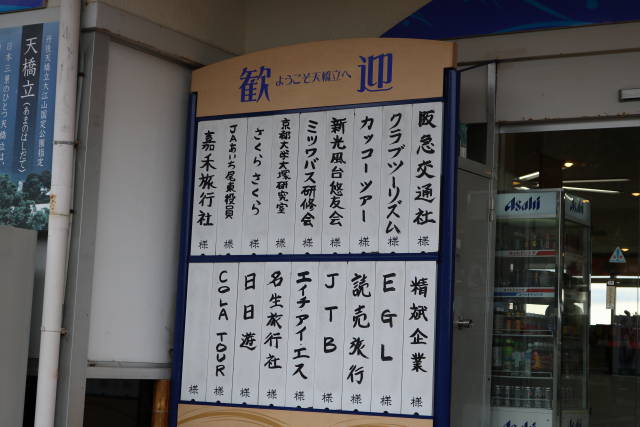 歓 ようこそ天橋立へ 迎
阪急交通社 様
クラブツーリズム 様
カッコーツアー 様
新光風台悠友会 様
ミツワバス研修会 様
京都大学大塚研究室 様
さくらさくら 様
JAあいち尾東役員 様
嘉禾旅行社 様
精斌企業 様
EGL 様
読売旅行 様
JTB 様
エイチアイエス 様
名生旅行社 様
日日遊 様
COLA TOUR 様
丹後天橋立大江山国定公園指定
天橋立(あまのはしだて)
日本三景のひとつ天橋立は、
Asahi
Asahi
Asahi